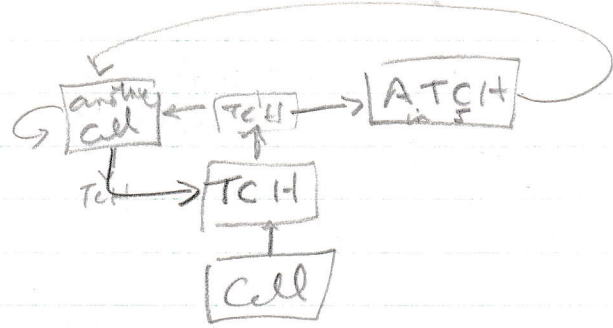 another
Call
TCH
ATCH
in 5
TCH
TCH
Call